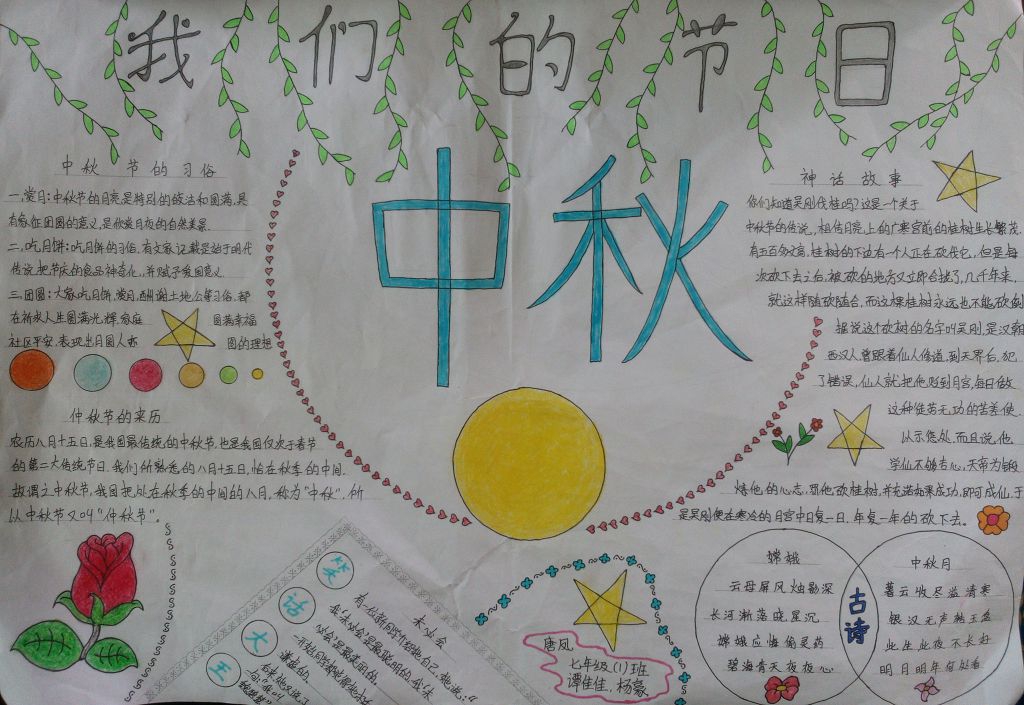 我们的节日
中秋
中秋节的习俗
一,赏月:中秋节的月亮是特别的皎洁和圆满,具
有象征团圆的意义,是欣赏月夜的自然美景.
二,吃月饼:吃月饼的习俗,有文字记载是始于明代
传说,把节庆的食品神奇化,并赋予爱国意义.
三.团圆:大家吃月饼,赏月,酬谢土地公等习俗,都
在祈求人生圆满光辉,家庭 圆满幸福
社区平安,表现出月圆人亦 圆的理想
仲秋节的来历
农历八月十五日,是我国最传统的中秋节,也是我国仅次于春节
的第二大传统节日.我们所熟悉的八月十五日,恰在秋季的中间.
故谓之中秋节,我国把处在秋季的中间的八月,称为“中秋”,所
以中秋节又叫“仲秋节”.
神话故事
你们知道吴刚伐桂吗?这是一个关于
中秋节的传说,相传月亮上的广寒宫前的桂树生长繁茂.
有五百多丈高,桂树的下边有一个人正在砍伐它,但是每
次砍下去之后,被砍的地方又立即合拢了,几千年来,
就这样随砍随合,而这棵桂树永远也不能砍倒
据说这个砍树的名字叫吴刚,是汉朝
西汉人,曾跟着仙人修道,到天界后,犯
了错误,仙人就把他贬到月宫,每日做
这种徒劳无功的苦差使.
以示惩处,而且说,他
学仙不够专心,天帝为锻
炼他的心志,罚他砍桂树,并允诺如果成功,即可成仙,于
是吴刚便在寒冷的月宫中日复一日.年复一年的砍下去。
笑话大王
未必会
唐风
七年级(1)班
谭佳佳.杨豪.
古诗
嫦娥
云母屏风烛影深
长河渐落晓星沉
嫦娥应悔偷灵药
碧海青天夜夜心
中秋月
暮云收尽溢清寒
银汉无声转玉盘
此生此夜不长好
明月明年何处看